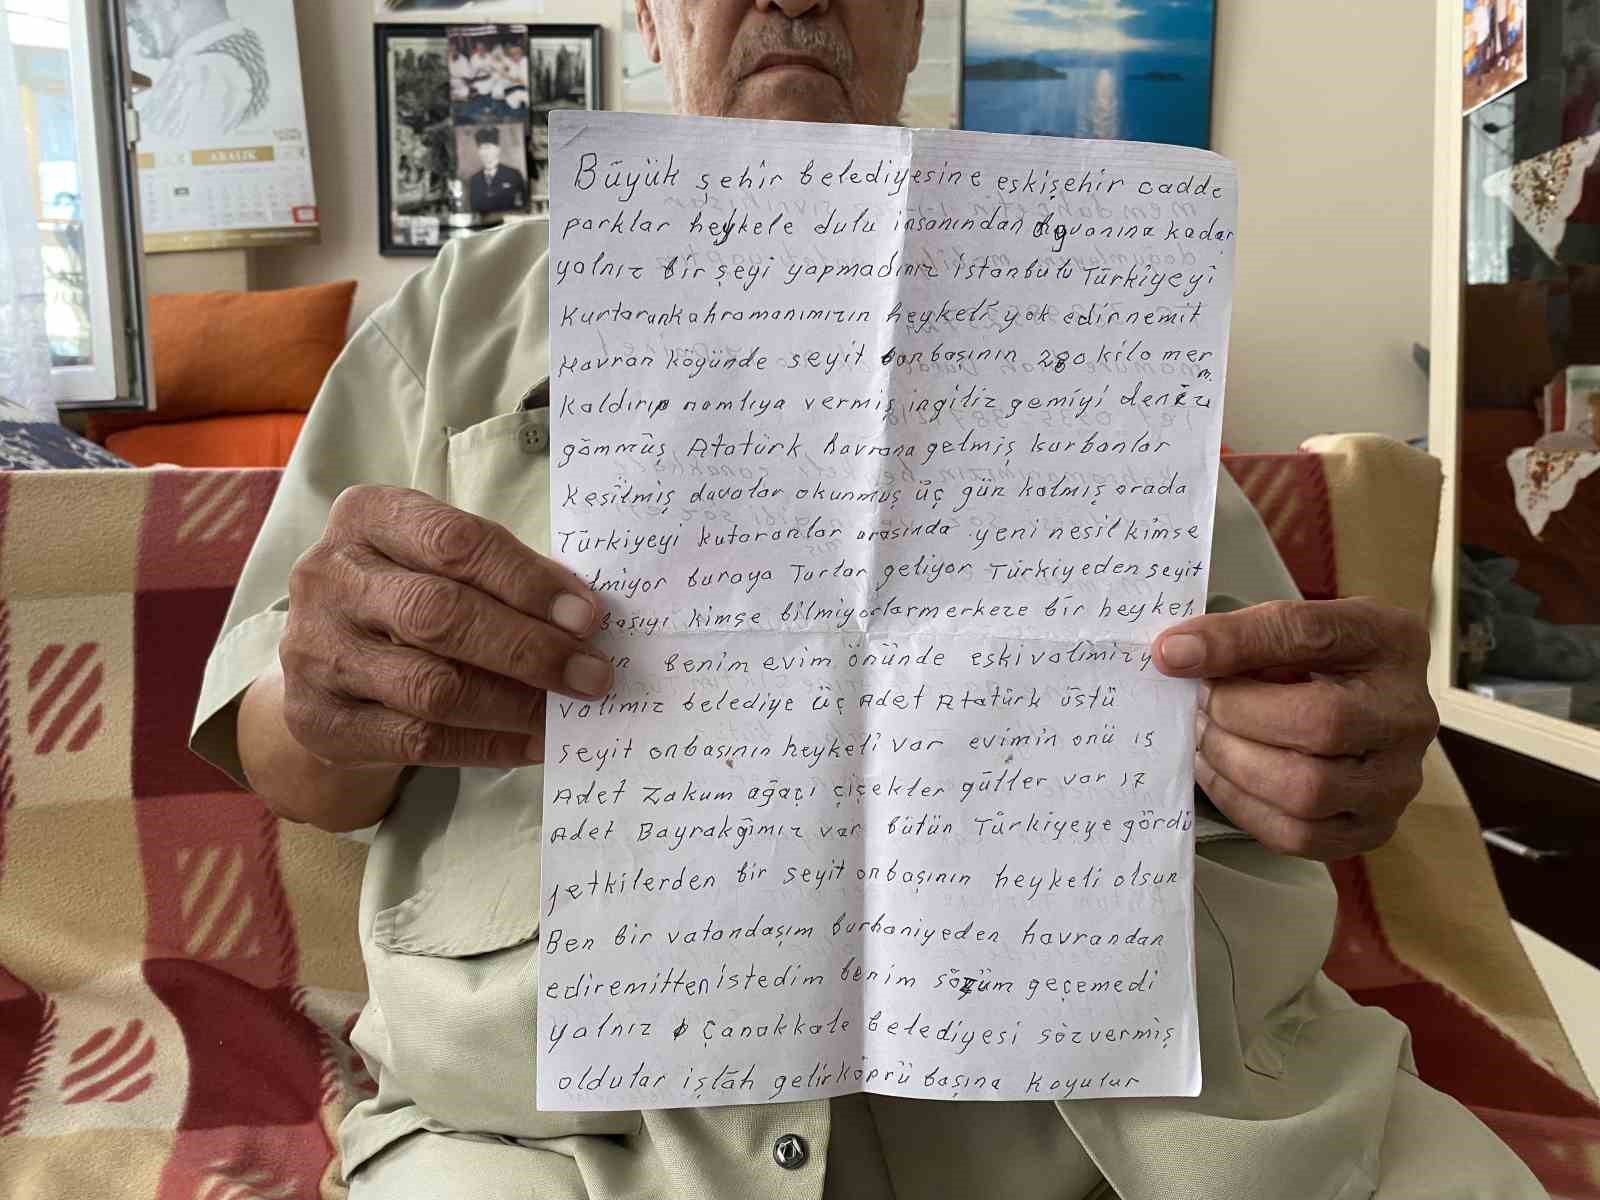 ARALIK
Büyük şehir belediyesine eskişehir cadde
parklar heykele dulu insanından hayvanına kadar
yalnız bir şeyi yapmadınız istanbulu Türkiyeyi
Kurtarankahramanımızın heykeli yok edirnemit
Havran köyünde seyit onbaşının 280 kilo mer
m.
Kaldırıp namlıya vermiş ingiliz gemiyi denizi
gömmüş Atatürk havrana gelmiş kurbanlar
Kesilmiş duvalar okunmuş üç gün kalmış orada
Türkiyeyi kutaranlar arasında yeni nesil kimse
ilmiyor buraya Turlar geliyor Türkiyeden seyit
başıyı kimse bilmiyorlarmerkeze bir heykel
benim evim önünde eski valimizy
valimiz belediye üç Adet Atatürk üstü
seyit onbaşının heykeli var evimin onü 15
Adet Zakum ağaçı çiçekler güller var 17
Adet Bayrakğımız var bütün Türkiyeye gördü
yetkilerden bir seyit onbaşının heykeli olsun
Ben bir vatandaşım burhaniyeden havrandan
ediremittenistedim benim sözüm geçemedi
yalnız Çanakkale belediyesi sözvermiş
oldular işlah gelirköprü başına koyular